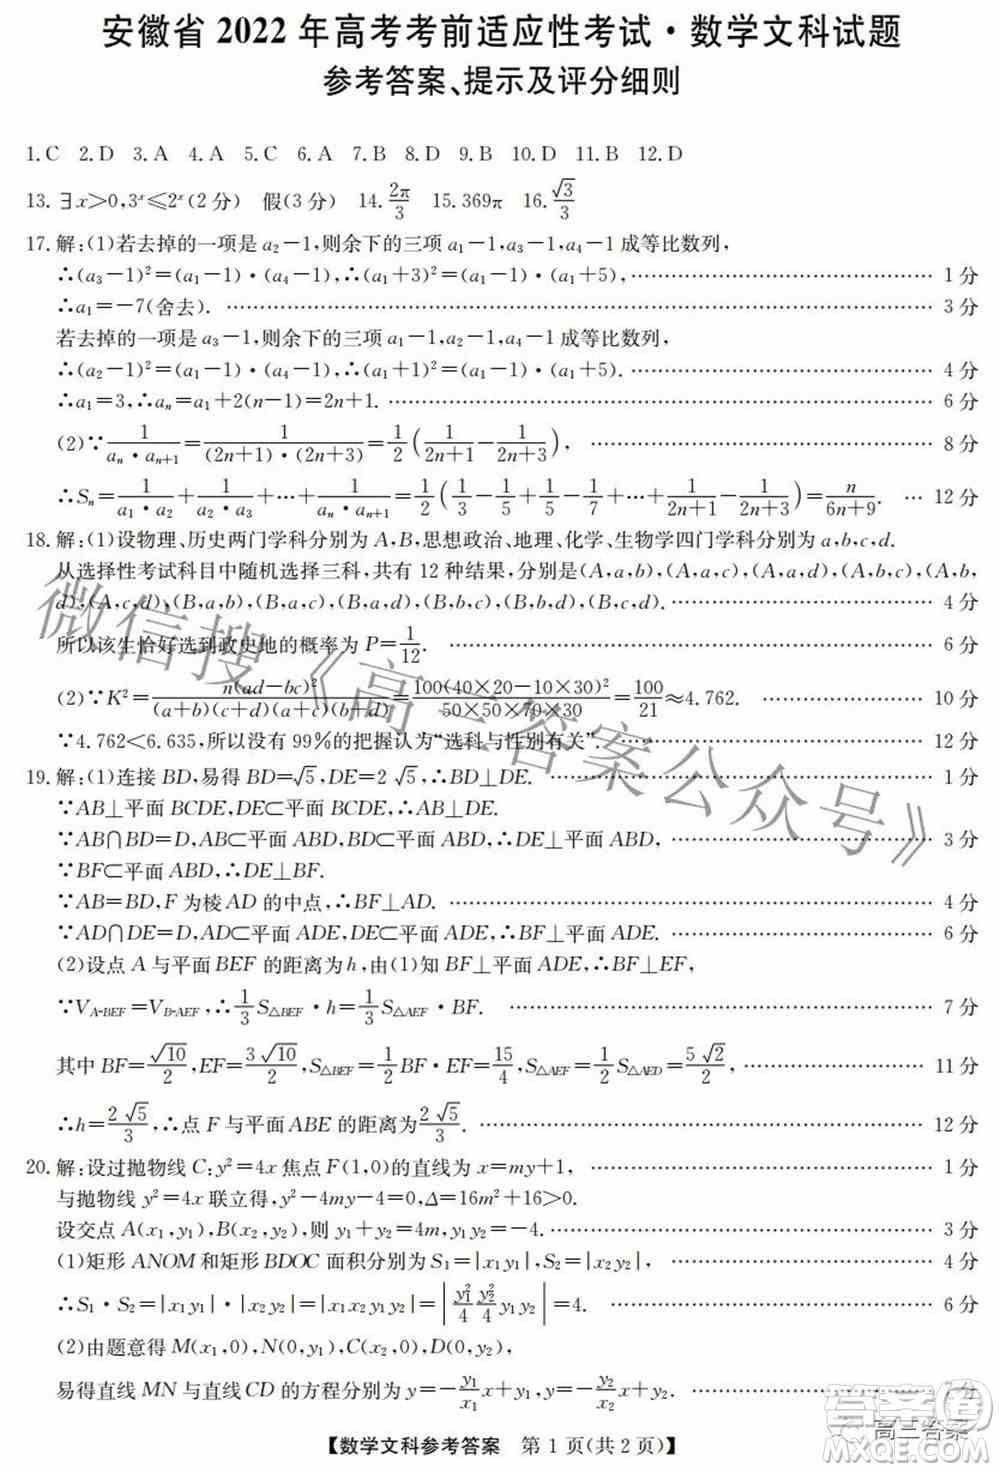 安徽省 2022 年高考考前适应性考试·数学文科试题
参考答案、提示及评分细则
1.C 2.D 3.A 4.A 5.C 6.A 7.B 8.D 9.B 10.D 11.B 12.D
13.∃x>0,3^x≤2^x(2 分) 假(3 分) 14.2π/3 15.369π 16.√3/3
17.解:(1)若去掉的一项是 a₂-1,则余下的三项 a₁-1,a₃-1,a₄-1 成等比数列,
∴(a₃-1)²=(a₁-1)·(a₄-1),∴(a₁+3)²=(a₁-1)·(a₁+5),……1 分
∴a₁=-7(舍去).……3 分
若去掉的一项是 a₃-1,则余下的三项 a₁-1,a₂-1,a₄-1 成等比数列,
∴(a₂-1)²=(a₁-1)·(a₄-1),∴(a₁+1)²=(a₁-1)·(a₁+5).……4 分
∴a₁=3,∴aₙ=a₁+2(n-1)=2n+1.……6 分
(2)∵1/(aₙ·aₙ₊₁)=1/((2n+1)·(2n+3))=1/2(1/(2n+1)-1/(2n+3)),……8 分
∴Sₙ=1/(a₁·a₂)+1/(a₂·a₃)+…+1/(aₙ·aₙ₊₁)=1/2(1/3-1/5+1/5-1/7+…+1/(2n+1)-1/(2n+3))=n/(6n+9).…12 分
18.解:(1)设物理、历史两门学科分别为 A,B,思想政治、地理、化学、生物学四门学科分别为 a,b,c,d.
从选择性考试科目中随机选择三科,共有 12 种结果,分别是(A,a,b),(A,a,c),(A,a,d),(A,b,c),(A,b,
d),(A,c,d),(B,a,b),(B,a,c),(B,a,d),(B,b,c),(B,b,d),(B,c,d).……4 分
所以该生恰好选到政史地的概率为 P=1/12.……6 分
(2)∵K²=n(ad-bc)²/((a+b)(c+d)(a+c)(b+d))=100(40×20-10×30)²/(50×50×70×30)=100/21≈4.762.……10 分
∵4.762<6.635,所以没有 99%的把握认为“选科与性别有关”.……12 分
19.解:(1)连接 BD,易得 BD=√5,DE=2√5,∴BD⊥DE.……1 分
∵AB⊥平面 BCDE,DE⊂平面 BCDE,∴AB⊥DE.
∵AB∩BD=D,AB⊂平面 ABD,BD⊂平面 ABD,∴DE⊥平面 ABD,……3 分
∵BF⊂平面 ABD,∴DE⊥BF.
∵AB=BD,F 为棱 AD 的中点,∴BF⊥AD.……4 分
∵AD∩DE=D,AD⊂平面 ADE,DE⊂平面 ADE,∴BF⊥平面 ADE.……6 分
(2)设点 A 与平面 BEF 的距离为 h,由(1)知 BF⊥平面 ADE,∴BF⊥EF,
∵V_{A-BEF}=V_{B-AEF},∴1/3 S△BEF·h=1/3 S△AEF·BF.……7 分
其中 BF=√10/2,EF=3√10/2,S△BEF=1/2 BF·EF=15/4,S△AEF=1/2 S△AED=5√2/2,……11 分
∴h=2√5/3,∴点 F 与平面 ABE 的距离为 2√5/3.……12 分
20.解:设过抛物线 C:y²=4x 焦点 F(1,0)的直线为 x=my+1,……1 分
与抛物线 y²=4x 联立得,y²-4my-4=0,Δ=16m²+16>0.
设交点 A(x₁,y₁),B(x₂,y₂),则 y₁+y₂=4m,y₁y₂=-4.……3 分
(1)矩形 ANOM 和矩形 BDOC 面积分别为 S₁=|x₁y₁|,S₂=|x₂y₂|,……4 分
∴S₁·S₂=|x₁y₁|·|x₂y₂|=|x₁x₂y₁y₂|=|y₁²/4 y₂²/4 y₁y₂|=4.……6 分
(2)由题意得 M(x₁,0),N(0,y₁),C(x₂,0),D(0,y₂),
易得直线 MN 与直线 CD 的方程分别为 y=-y₁/x₁ x+y₁,y=-y₂/x₂ x+y₂.……分
【数学文科参考答案 第 1 页(共 2 页)】
微信搜《高三答案公众号》
高三答案
答案圈
MXQE.COM